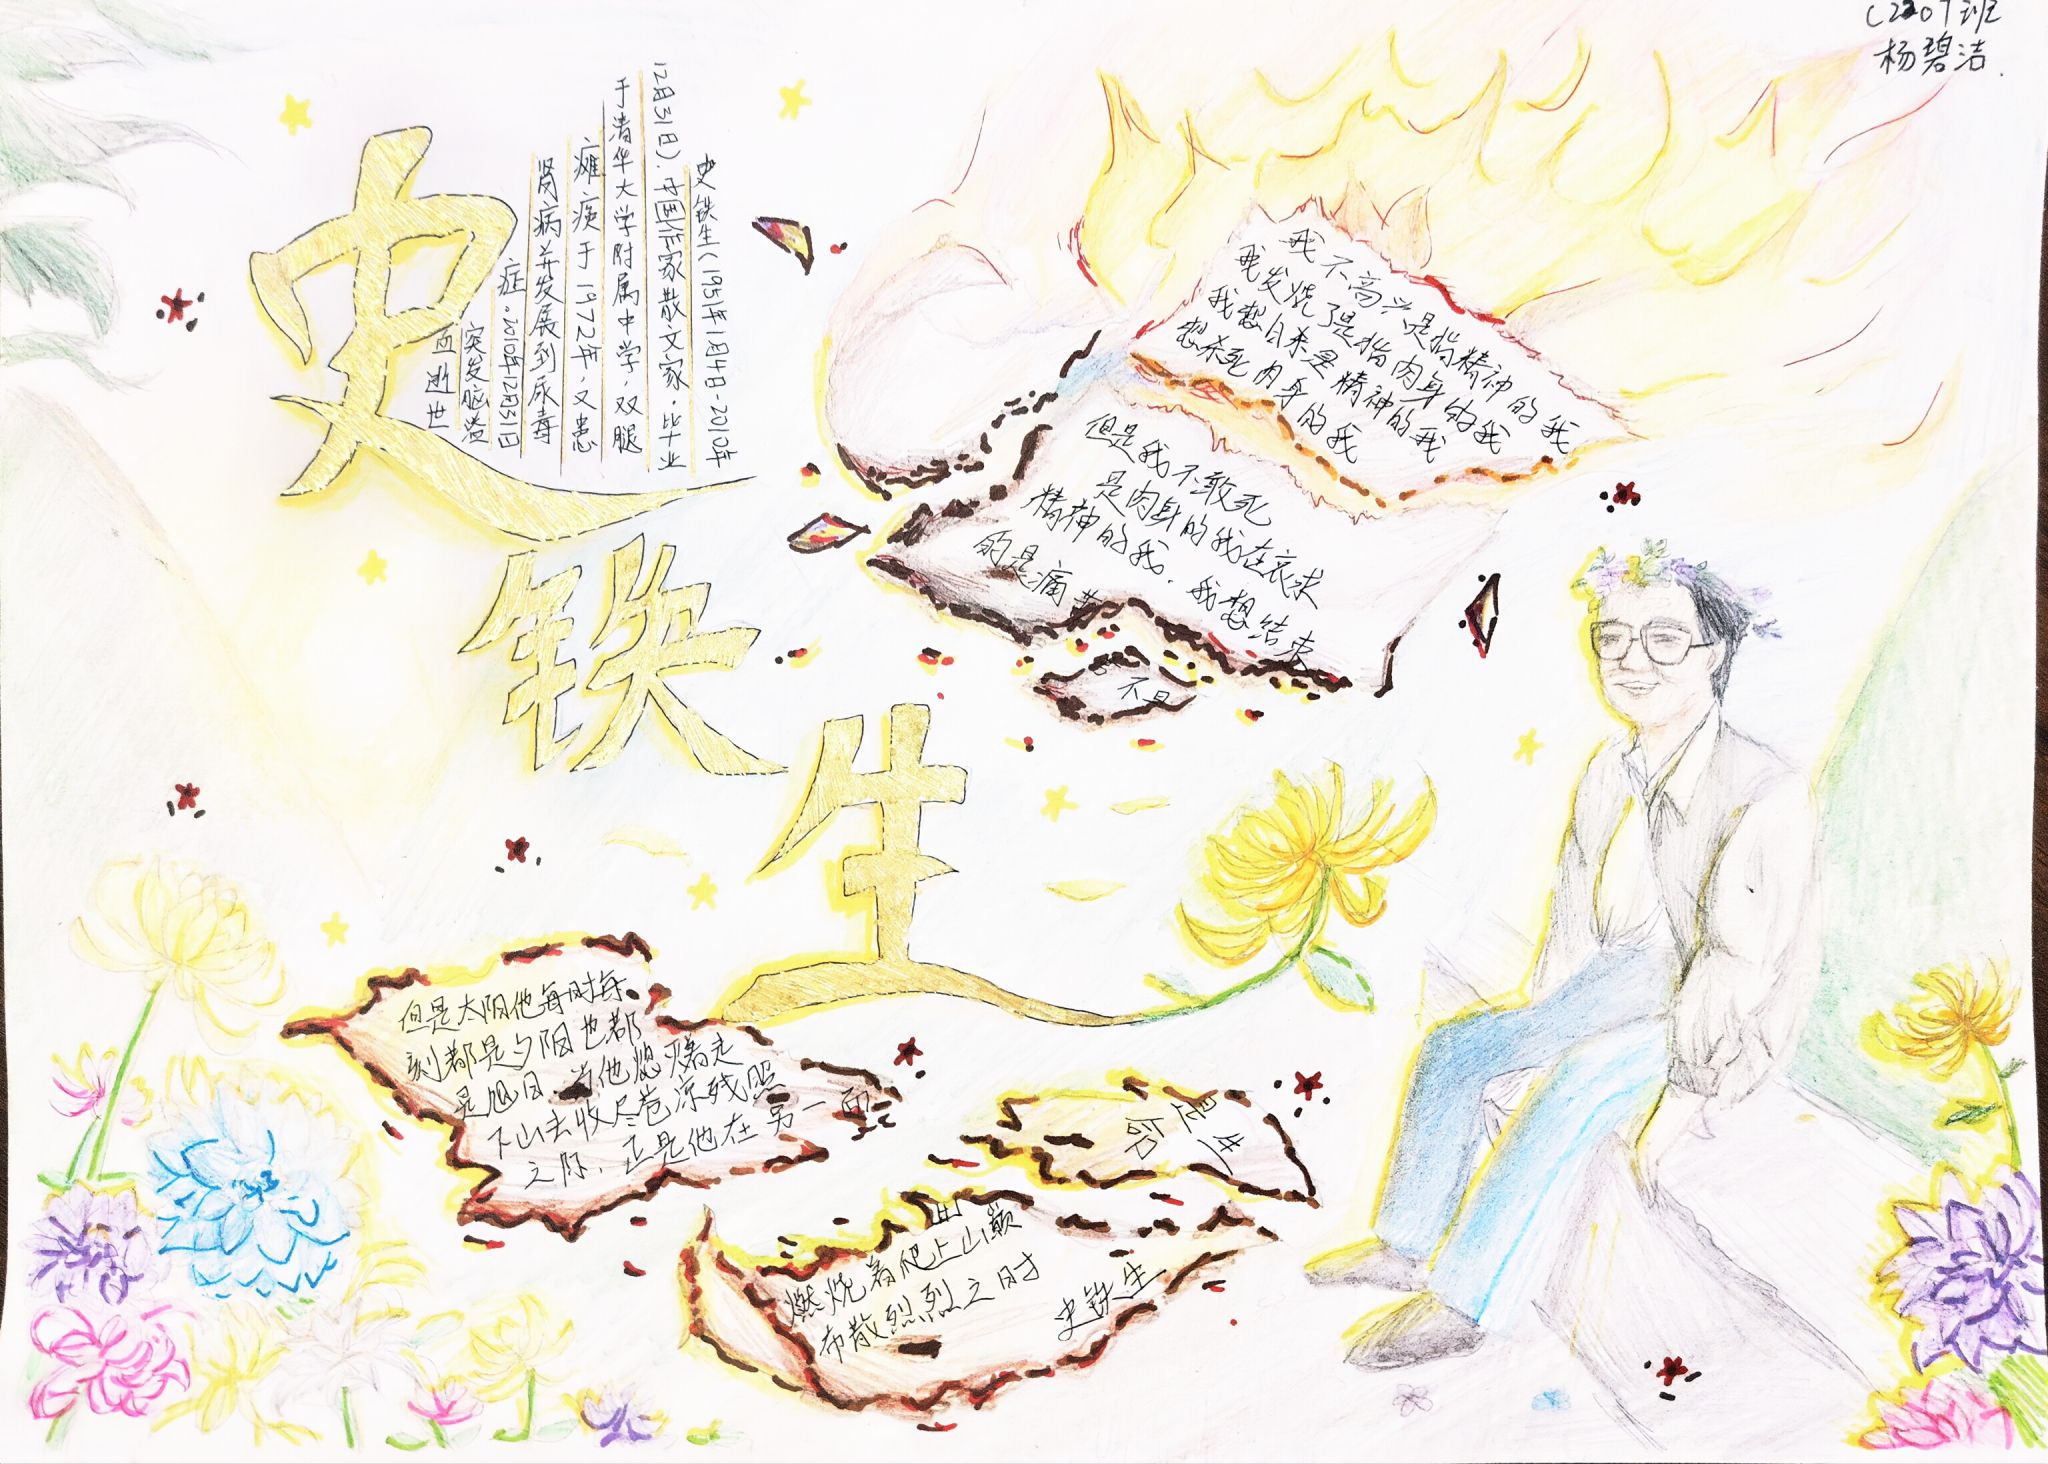 C2207班
杨碧洁.
史铁生
史铁生(1951年1月4日-2010年
12月31日).中国作家散文家.毕业
于清华大学附属中学.双腿
瘫痪于1972年.又患
肾病并发展到尿毒
症.2010年12月31日
突发脑溢
血逝世
我不高兴是指精神的我
我发烧了是指肉身的我
我想自杀是精神的我
想杀死肉身的我
但是我不敢死
是肉身的我在哀求
精神的我.我想结束
的是痛苦
不是
生
是
命
但是太阳他每时每
刻都是夕阳也都
是旭日.当他熄熁着走
下山去收尽苍凉残照
之际.正是他在另一面
燃烧着爬上山巅
布散烈烈之时
史铁生